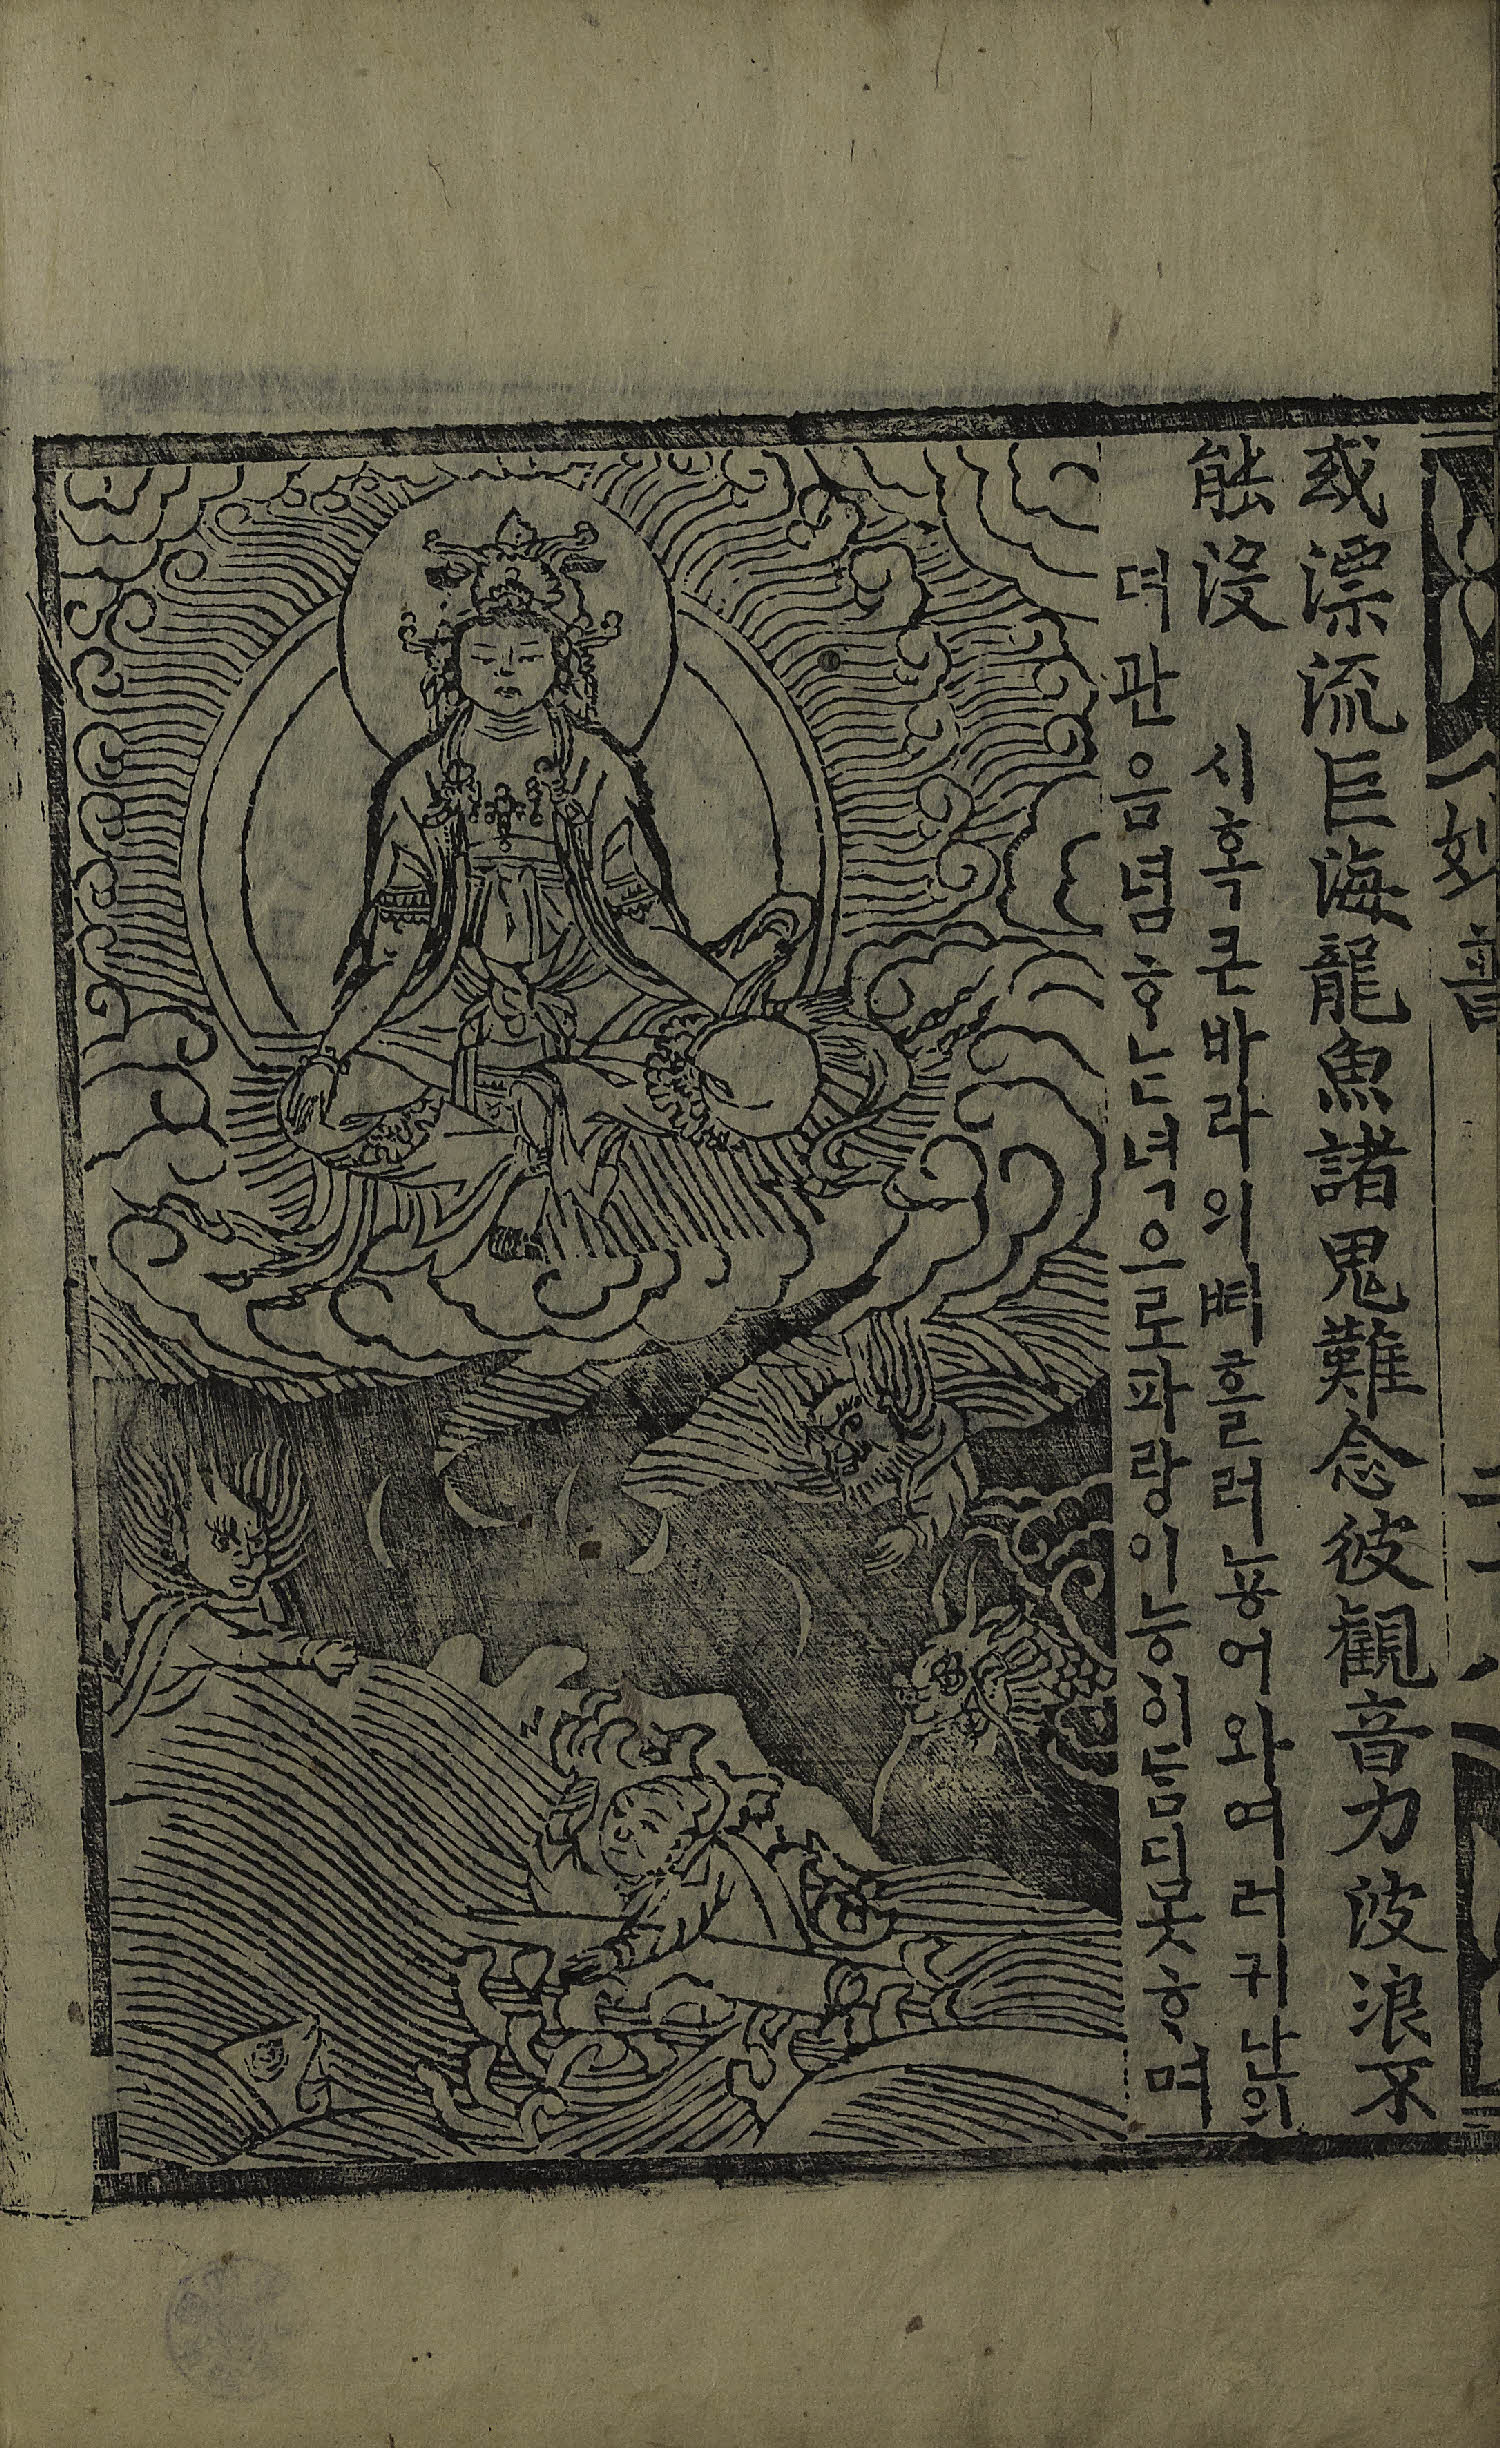 妙普
或漂流巨海龍魚諸鬼難念彼觀音力波浪不
能没 시혹큰바라의ᄠᅥ흘러뇽어와여러귀난의
뎌관음념ᄒᆞᄂᆞᆫ녁으로파랑이능히듬디못ᄒᆞ며